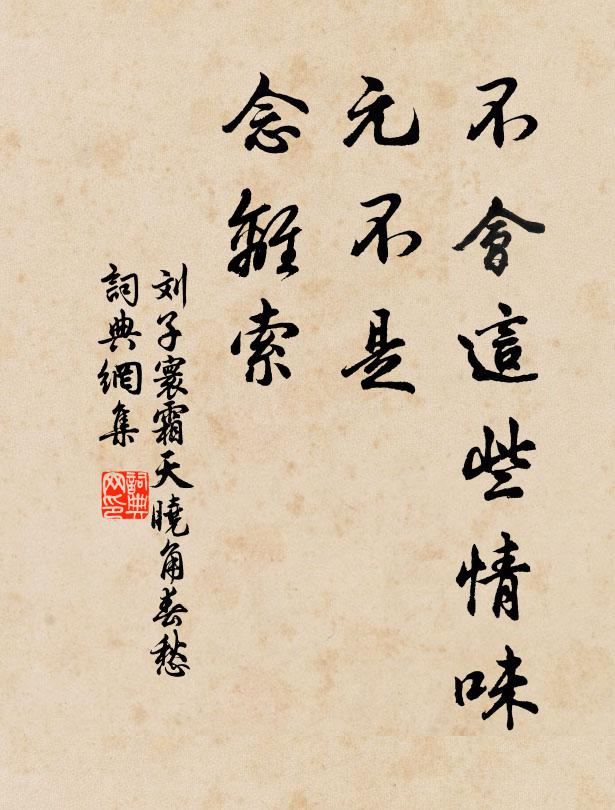 不會這些情味
元不是
念離索
刘子寰霜天曉角春愁
詞典網集
詞典網印